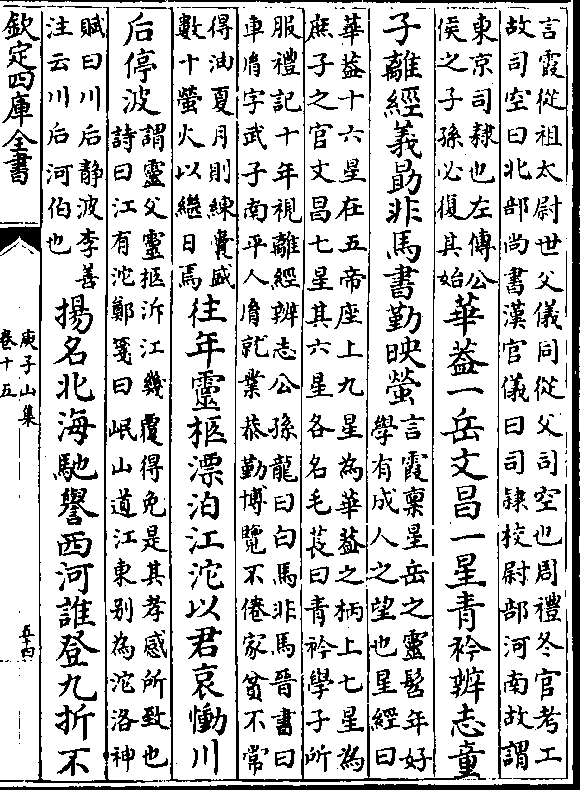 言霞從祖太尉世父儀同從父司空也周禮冬官考工
故司空曰北部尚書漢官儀曰司隸校尉部河南故謂
東京司隸也左傳公
侯之子孫必復其始
華葢一岳文昌一星青衿辨志童
子離經義勛非馬書勤映螢
言霞稟星岳之靈髫年好
學有成人之望也星經曰
華葢十六星在五帝座上九星為華葢之柄上七星為
庶子之官文昌七星其六星各名毛萇曰青衿學子所
服禮記十年視離經辨志公孫龍曰白馬非馬晉書曰
車胤字武子南平人胤就業恭勤博覽不倦家貧不常
得油夏月則練囊盛
數十螢火以繼日焉
往年靈柩漂泊江沱以君哀慟川
后停波
謂靈父靈柩泝江幾覆得免是其孝感所致也
詩曰江有沱鄭箋曰岷山道江東别為沱洛神
賦曰川后静波李善
注云川后河伯也
揚名北海馳譽西河誰登九折不
欽定四庫全書
庾子山集
卷十五
五十四